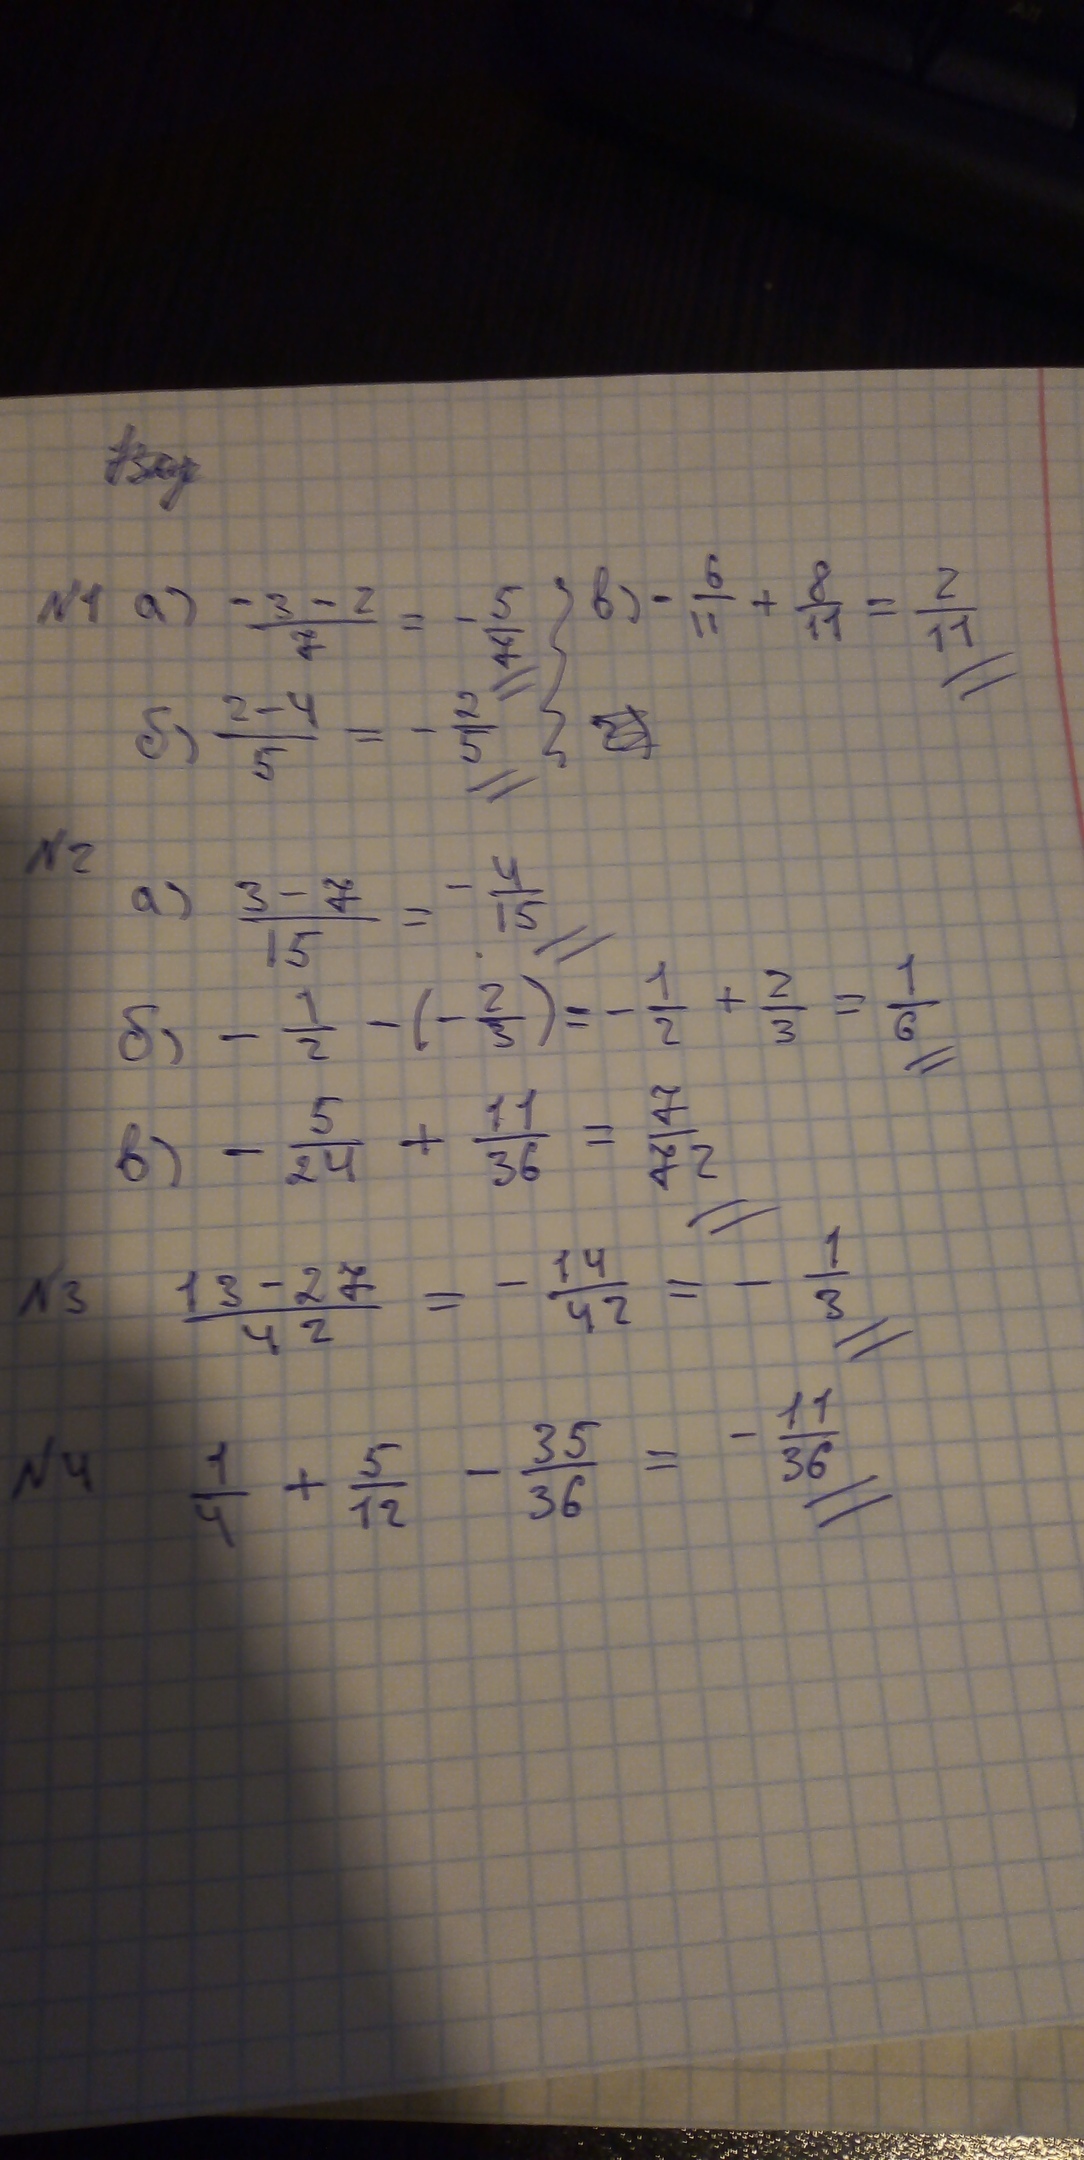 №1 а) (-3-2)/7 = -5/7 в) -6/11 + 8/11 = 2/11
б) (2-4)/5 = -2/5
№2
а) (3-7)/15 = -4/15
б) -1/2 - (-2/3) = -1/2 + 2/3 = 1/6
в) -5/24 + 11/36 = 7/72
№3 (13-27)/42 = -14/42 = -1/3
№4 1/4 + 5/12 - 35/36 = -11/36